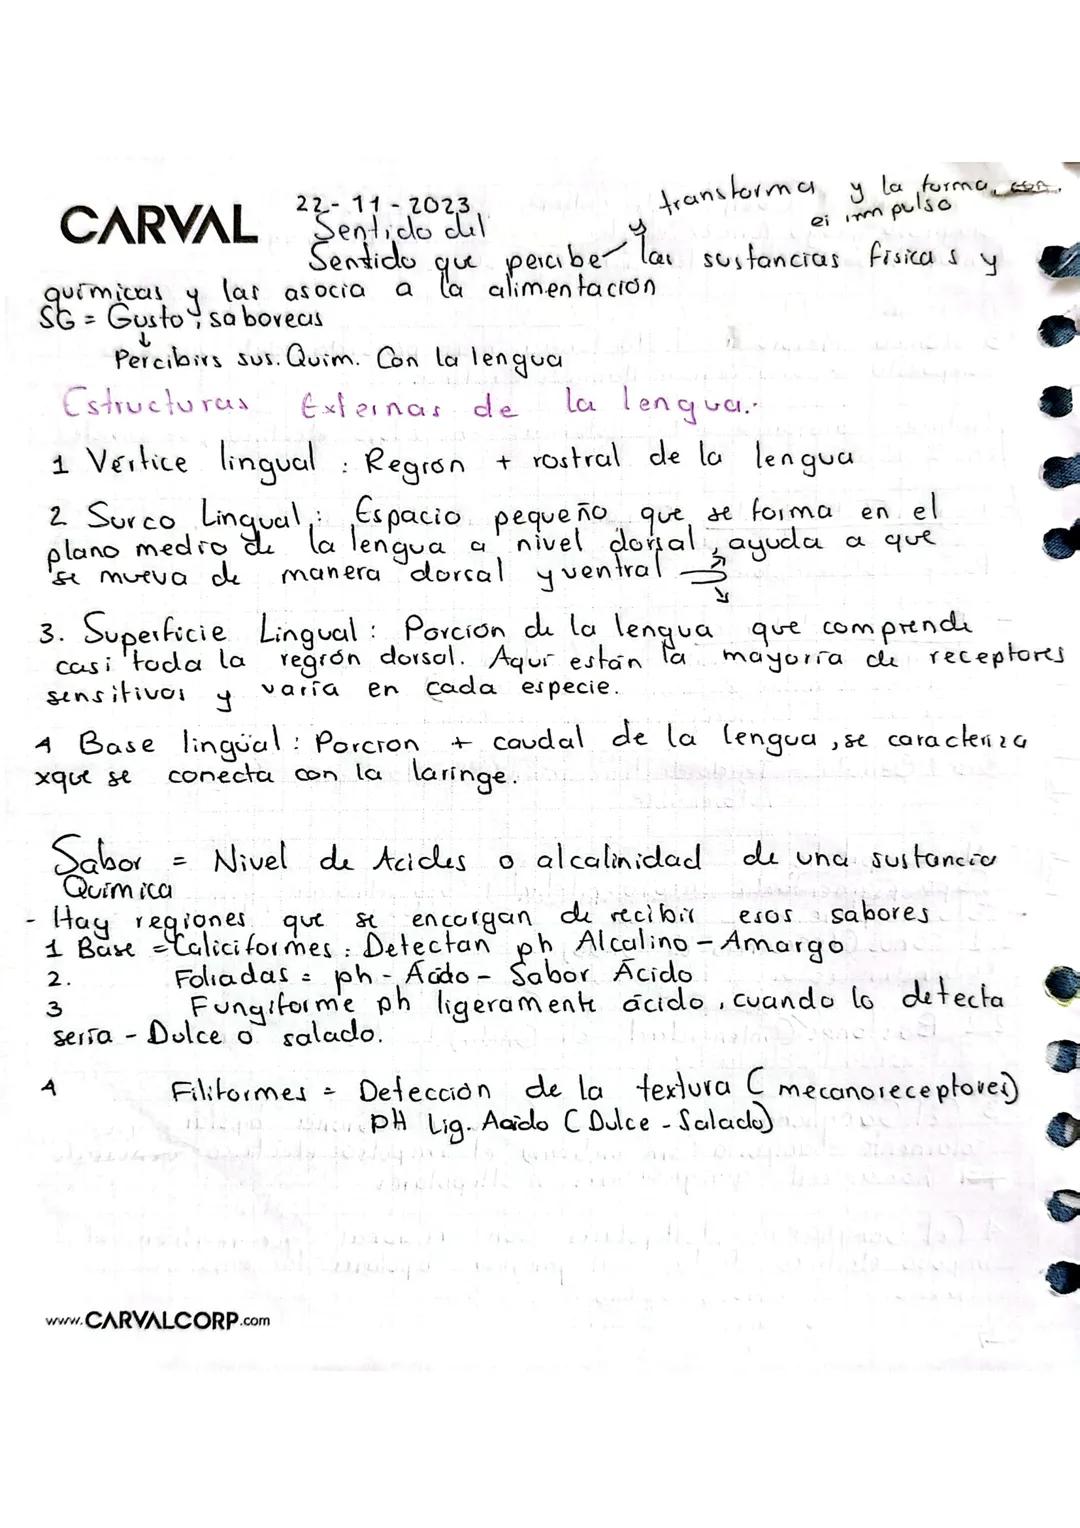 transforma y la forma con
el impulso
CARVAL
22-11-2023
Sentido del
Sentido que percibe y las sustancias físicas y
químicas y las asocia a la alimentación
SG = Gusto, saboreas
↓
Percibirs sus. Quim. Con la lengua
Estructuras Externas de la lengua.
1 Vértice lingual : Región + rostral de la lengua
2 Surco Lingual : Espacio pequeño que se forma en el
plano medio de la lengua a nivel dorsal, ayuda a que
se mueva de manera dorsal y ventral
3. Superficie Lingual : Porción de la lengua que comprende
casi toda la región dorsal. Aquí están la mayoría de receptores
sensitivos y varía en cada especie.
4 Base lingüal : Porción + caudal de la lengua, se caracteriza
xque se conecta con la laringe.
Sabor = Nivel de Acides o alcalinidad de una sustancia
Química
- Hay regiones que se encargan de recibir esos sabores
1 Base = Caliciformes : Detectan ph Alcalino - Amargo
2. Foliadas = ph - Ácido - Sabor Ácido
3 Fungiforme ph ligeramente ácido, cuando lo detecta
sería - Dulce o salado.
4 Filiformes = Detección de la textura (mecanoreceptores)
pH Lig. Acido (Dulce - Salado)
www.CARVALCORP.com